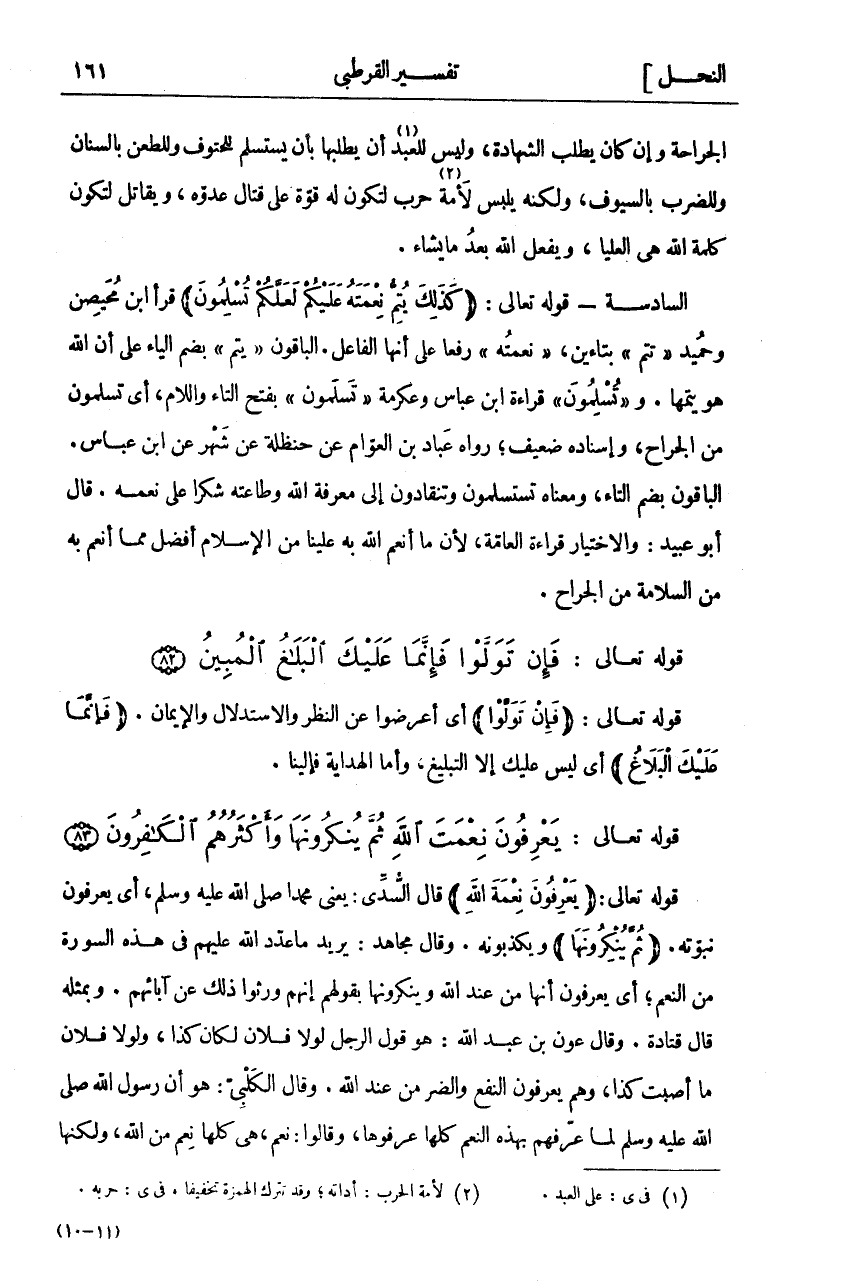 النحـــل ] تفســـير القرطبى ١٦١
الجراحة وإن كان يطلب الشهادة، وليس للعبد(١) أن يطلبها بأن يستسلم للحتوف وللطعن بالسنان
وللضرب بالسيوف، ولكنه يلبس لَأْمة(٢) حرب لتكون له قوّة على قتال عدوّه، ويقاتل لتكون
كلمة الله هى العليا، ويفعل الله بعدُ ما يشاء .
السادســـة — قوله تعالى: ﴿كَذَلِكَ يُتِمُّ نِعْمَتَهُ عَلَيْكُمْ لَعَلَّكُمْ تُسْلِمُونَ﴾ قرأ ابن مُحَيصِن
وحُميد « تتم » بتاءين، « نعمتُه » رفعا على أنها الفاعل. الباقون « يتم » بضم الياء على أن الله
هو يتمها . و «تُسْلِمُونَ» قراءة ابن عباس وعكرمة « تَسلَمون » بفتح التاء واللام، أى تسلمون
من الجراح، وإسناده ضعيف؛ رواه عَباد بن العوّام عن حنظلة عن شَهْر عن ابن عبـاس.
الباقون بضم التاء، ومعناه تستسلمون وتنقادون إلى معرفة الله وطاعته شكرا على نعمـه . قال
أبو عبيد : والاختيار قراءة العامّة، لأن ما أنعم الله به علينا من الإسـلام أفضل ممـا أنعم به
من السلامة من الجراح .
قوله تعـالى : فَإِن تَوَلَّوْا فَإِنَّمَا عَلَيْكَ ٱلْبَلَـٰغُ ٱلْمُبِينُ ﴿٨٢﴾
قوله تعـالى : ﴿فَإِنْ تَوَلَّوْا﴾ أى أعرضوا عن النظر والاستدلال والإيمان . ﴿فَإِنَّمَـا
عَلَيْكَ الْبَلَاغُ﴾ أى ليس عليك إلا التبليغ، وأما الهداية فإلينا .
قوله تعـالى : يَعْرِفُونَ نِعْمَتَ ٱللَّهِ ثُمَّ يُنكِرُونَهَا وَأَكْثَرُهُمُ ٱلْكَـٰفِرُونَ ﴿٨٣﴾
قوله تعالى: ﴿يَعْرِفُونَ نِعْمَةَ اللَّهِ﴾ قال السُّدِّى: يعنى محمدا صلى الله عليه وسلم، أى يعرفون
نبوّته. ﴿ثُمَّ يُنْكِرُونَهَا﴾ ويكذبونه . وقال مجاهد : يريد ما عدّد الله عليهم فى هـذه السورة
من النعم؛ أى يعرفون أنها من عند الله وينكرونها بقولهم إنهم ورثوا ذلك عن آبائهم . وبمثله
قال قتادة . وقال عون بن عبـد الله : هو قول الرجل لولا فـلان لكان كذا ، ولولا فـلان
ما أصبت كذا، وهم يعرفون النفع والضر من عند الله . وقال الكَلْبِىّ : هو أن رسول الله صلى
الله عليه وسلم لمـا عرّفهم بهذه النعم كلها عرفوها، وقالوا: نعم، هى كلها نِعم من الله، ولكنها
(١) فى ى : على العبد . (٢) لأمة الحرب : أداته؛ وقد تترك الهمزة تخفيفا . فى ى : حربه .
(١٠-١١)